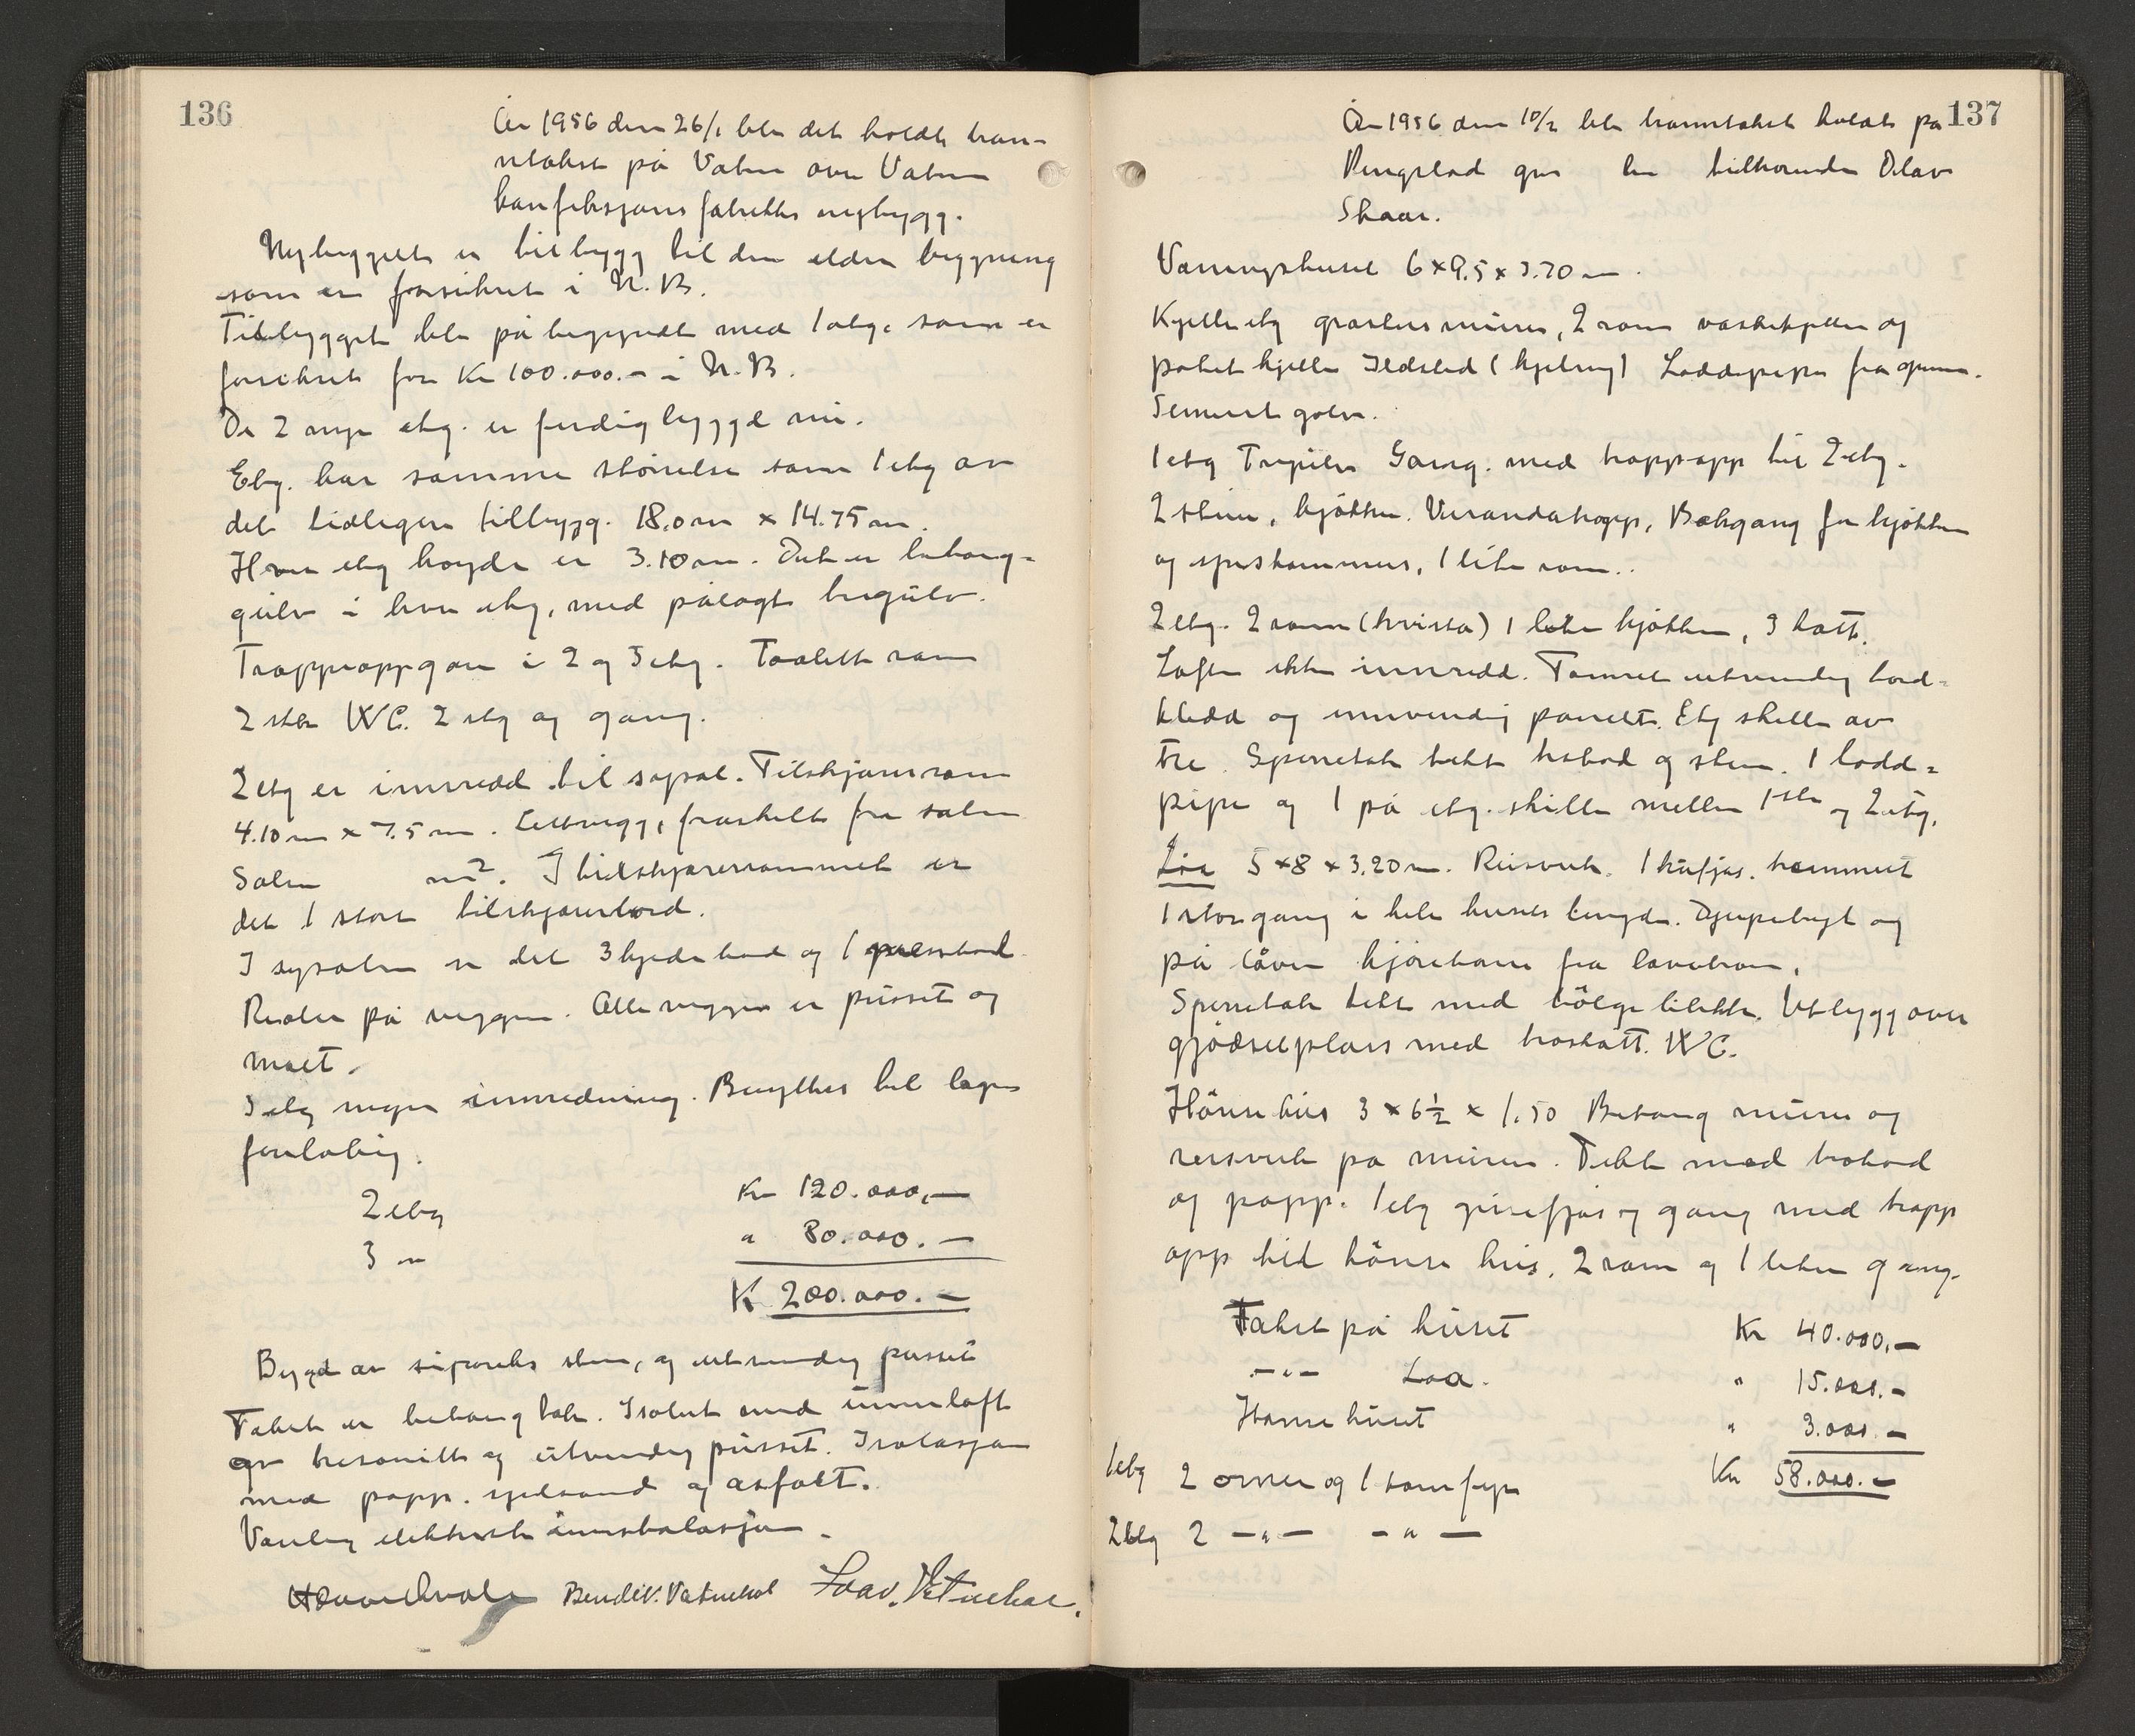 136
År 1956 den 26/1 ble det holdt bran-
ntakst på Vatne over Vatne
konfeksjons fabrikks nybygg.
Nybygget er tilbygg til den eldre byggning
som er forsikret i N.B.
Tilbygget ble påbegyndt med 1 etg. som er
forsikret for Kr 100.000.- i N.B.
De 2 nye etg. er ferdig byggd nu.
Etg. har samme størrelse som 1 etg av
det tidligere tilbygg. 18.0 m x 14.75 m.
Hver etg høyde er 3.10 m. Det er betong-
gulv i hver etg, med pålagt
Trappeoppgan i 2 og 3 etg. Toalett rom
2 stk WC. 2 etg og gang.
2 etg er innredd til sysal. Tilskjærerrom
4.10 m x 7.5 m. Lettvegg, fraskilt fra salen
Salen m². I tilskjærerrommet er
det 1 stort tilskjærerbord.
I sysalen er det 3 kjedebord og 1 pressbord.
Reoler på veggen. Alle vegger er pusset og
malt.
3 etg ingen innredning. Benyttes til lager
foreløbig.
2 etg Kr 120.000,—
3 " " 80.000.—
K 200.000.—
Bygd av siporeks sten, og utvendig pusset
Taket er betong tak. Isolert med innerloft
av tresonitt og utvendig pusset. Isolasjon
med papp. og asfalt.
Vanlig elektrisk innstalasjon.
Bendik V. Vatnehol
137
År 1956 den 10/2 ble branntakst holdt på
Ringstad gnr bnr tilhørende Olav
Skaar.
Våningshuset 6 x 9.5 x 3.70 m.
Kjeller etg gråstens murer, 2 rom vaskekjeller og
potetkjeller Ildsted (kjelring) Loddpipe fra grunn.
Sement golv.
1 etg Trepiler Gang. med trapp opp til 2 etg.
2 stuer, kjøkken. Verandatrapp, Bakgang for kjøkken
og spiskammer, 1 lite rom..
2 etg. 2 rom (kvista) 1 lite kjøkken, 3 kott.
Loftet ikke innredd. Tømret utvendig bord-
kledd og innvendig panelt. Etg skille av
tre. Sperretak tekt trobord og sten. 1 lodd-
pipe og 1 på etg. skille mellem 1ste og 2 etg.
Løe 5 x 8 x 3.20 m. Reisverk. 1 kufjøs. tømmret
1 stor gang i hele husets lengde. Djupebygt og
på låven kjørebane fra lavebroen.
Sperretak tekt med bølge blikk. Utbygg over
gjødselplass med treskott. WC.
Hønse hus 3 x 6½ x 1.50 Betong murer og
reisverk på muren. Tekt med trobord
og papp. 1 etg grisefjøs og gang med trapp
opp til hønse hus, 2 rom og 1 liten gang.
Takst på huset Kr 40.000,—
—"— Løa. " 15.000.—
Hønse huset " 3.000.—
Kr 58.000.—
1 etg 2 ovner og 1 komfyr
2 etg 2 —"— —"—